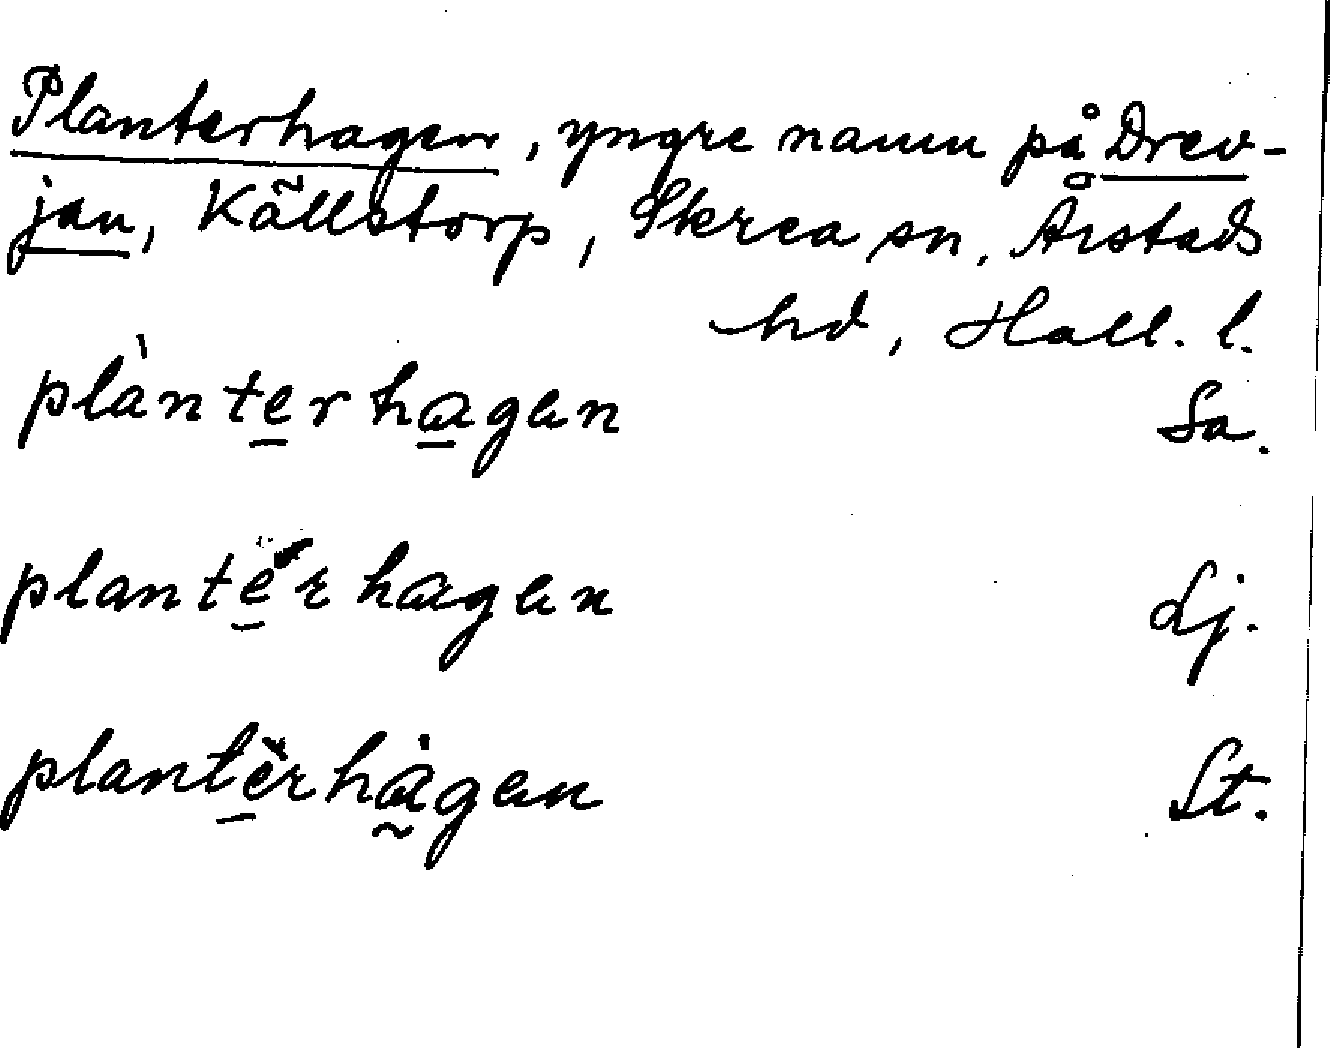 Planterhagen, yngre namn på Drev-
jan, Källstorp, Skrea sn, Årstads
hd, Hall. l.
plànterhagen Sa.
plantèrhagen Lj.
plantèrhàgen St.